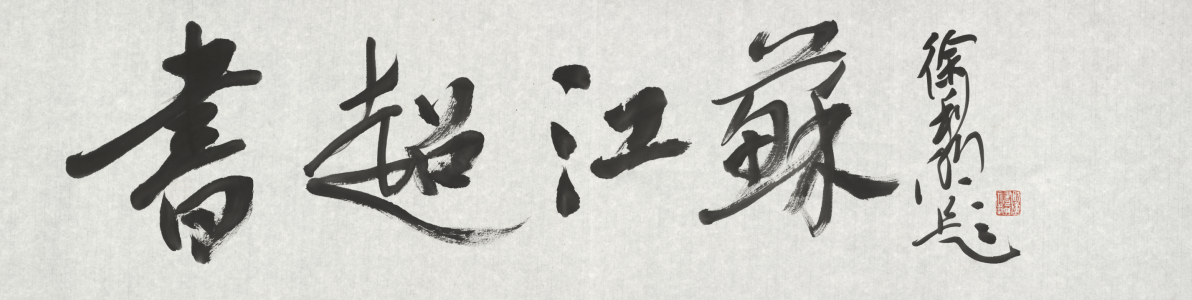 書超江蘇
徐利明題